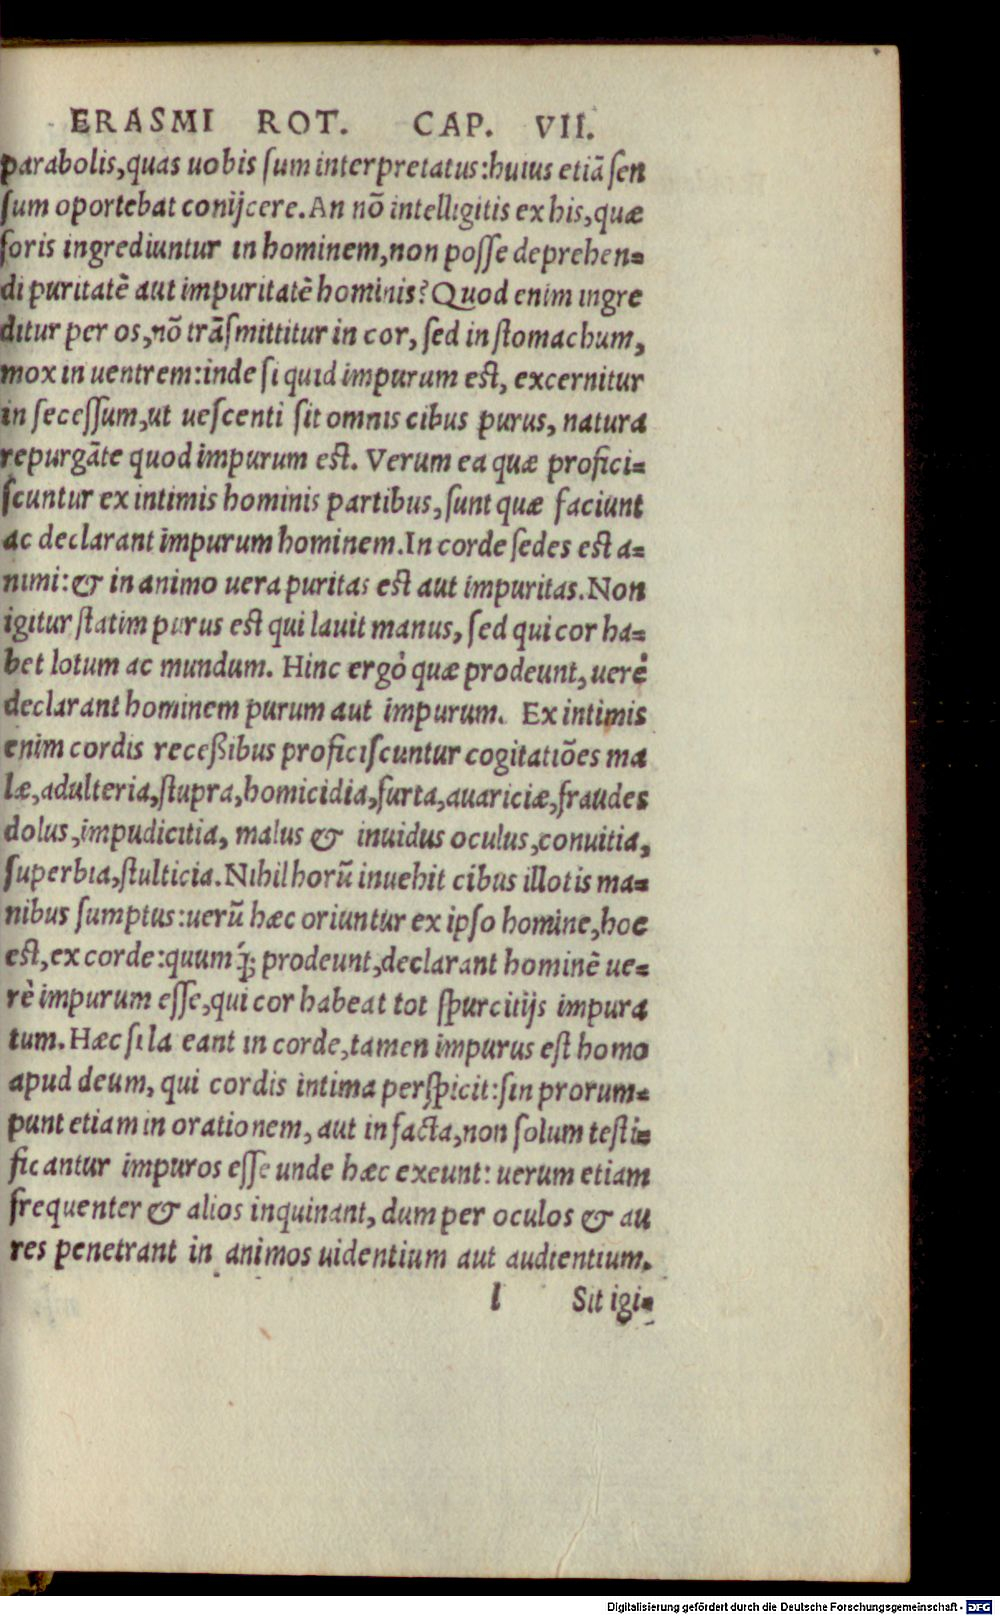 ERASMI ROT. CAP. VII.
parabolis,quas uobis ſum interpretatus:huius etiã ſen
ſum oportebat conijcere.An nõ intelligitis ex his,quæ
foris ingrediuntur in hominem,non poſſe deprehen=
di puritatẽ aut impuritatẽ hominis?Quod enim ingre
ditur per os,nõ trãſmittitur in cor, ſed in ſtomachum,
mox in uentrem:inde ſi quid impurum eſt, excernitur
in ſeceſſum,ut ueſcenti ſit omnis cibus purus, natura
repurgãte quod impurum eſt. Verum ea quæ profici=
ſcuntur ex intimis hominis partibus, ſunt quæ faciunt
ac declarant impurum hominem.In corde ſedes eſt a=
nimi:& in animo uera puritas eſt aut impuritas.Non
igitur ſtatim purus eſt qui lauit manus, ſed qui cor ha=
bet lotum ac mundum. Hinc ergò quæ prodeunt, uerè
declarant hominem purum aut impurum. Ex intimis
enim cordis receßibus proficiſcuntur cogitatiões ma
læ,adulteria,ſtupra,homicidia,furta,auariciæ,fraudes
dolus,impudicitia, malus & inuidus oculus,conuitia,
ſuperbia,ſtulticia.Nihil horũ inuehit cibus illotis ma=
nibus ſumptus:uerũ hæc oriuntur ex ipſo homine,hoc
eſt,ex corde:quumq́; prodeunt,declarant hominẽ ue=
rè impurum eſſe,qui cor habeat tot ſpurcitijs impura
tum.Hæc ſi la eant in corde,tamen impurus eſt homo
apud deum, qui cordis intima perſpicit:ſin prorum=
punt etiam in orationem, aut in facta,non ſolum teſti=
ficantur impuros eſſe unde hæc exeunt: uerum etiam
frequenter & alios inquinant, dum per oculos & au
res penetrant in animos uidentium aut audientium.
l Sit igi=
Digitalisierung gefördert durch die Deutsche Forschungsgemeinschaft - DFG